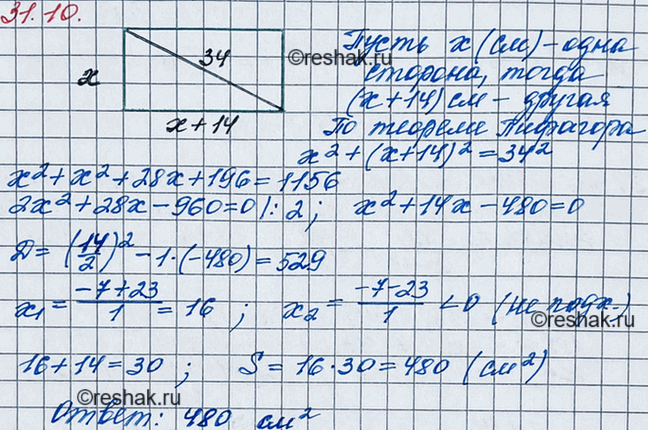 31.10.
34
x
x+14
©reshak.ru
Пусть x (см) – одна
сторона, тогда
(x+14) см – другая
По теореме Пифагора
x² + (x+14)² = 34²
x² + x² + 28x + 196 = 1156
2x² + 28x – 960 = 0 |: 2 ; x² + 14x – 480 = 0
D = (14/2)² – 1·(–480) = 529
x₁ = (–7+23)/1 = 16 ; x₂ = (–7–23)/1 < 0 (не подх.)
©reshak.ru
16+14 = 30 ; S = 16·30 = 480 (см²)
©reshak.ru
Ответ: 480 см²